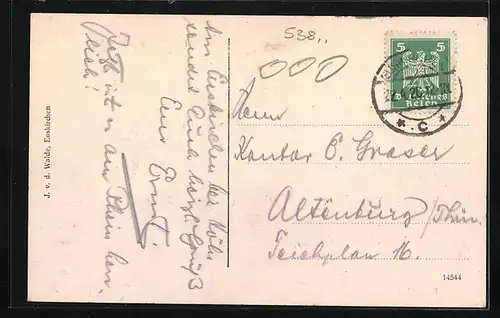 538,,
Jetzt ist es am Rhein herr-
lich!
Aus Euskirchen bei Köln
sendet Euch herzl. Gruß
Euer Ernst.
J. v. d. Walde, Euskirchen
5 5
Deutsches
Reich
* C *
Herrn
Kantor E. Graser
Altenburg /Thür.
Teichplan 16.
14544